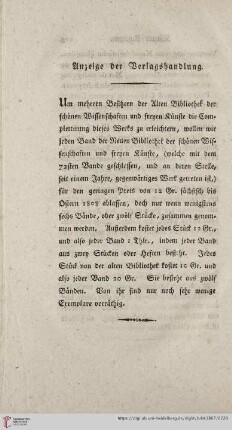 Anzeige der Verlagshandlung.
Um mehreren Besitzern der Alten Bibliothek der
schönen Wissenschaften und freyen Künste die Com-
pletirung dieses Werks zu erleichtern, wollen wir
jeden Band der Neuen Bibliothek der schönen Wis-
senschaften und freyen Künste, (welche mit dem
72sten Bande geschlossen, und an deren Stelle,
seit einem Jahre, gegenwärtiges Werk getreten ist,)
für den geringen Preis von 12 Gr. sächsisch bis
Ostern 1808 ablassen, doch nur wenn wenigstens
sechs Bände, oder zwölf Stücke, zusammen genom-
men werden. Ausserdem kostet jedes Stück 12 Gr.,
und also jeder Band 1 Thlr., indem jeder Band
aus zwey Stücken oder Heften besteht. Jedes
Stück von der alten Bibliothek kostet 10 Gr. und
also jeder Band 20 Gr. Sie besteht aus zwölf
Bänden. Von ihr sind nur noch sehr wenige
Exemplare vorräthig.